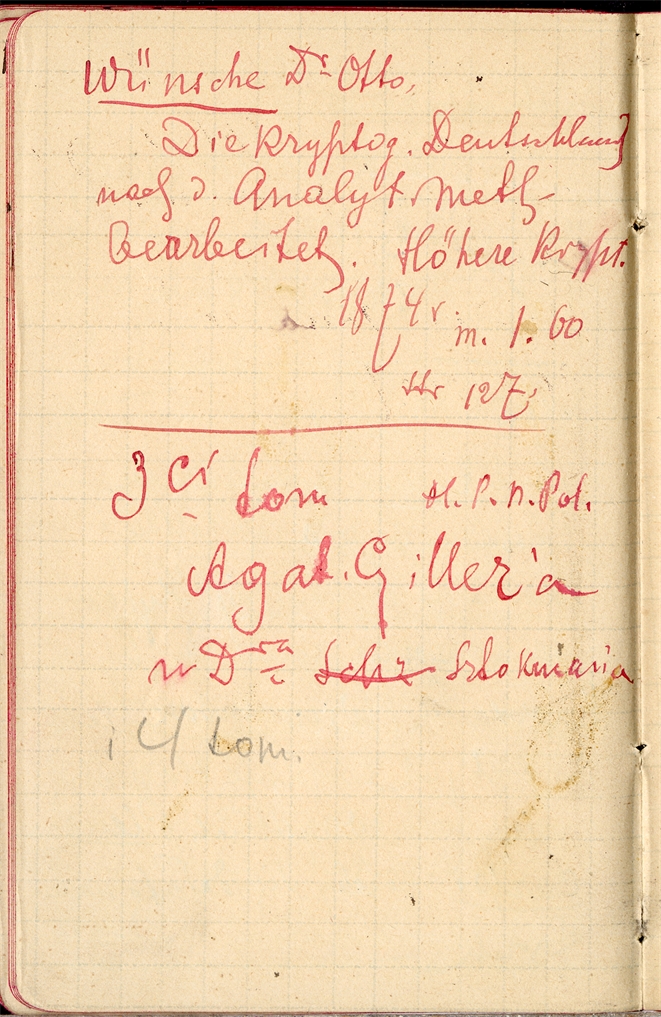 Wünsche Dr Otto,
Die Kryptog. Deutschlands
nach d. Analyt. Meth.
bearbeitet. Höhere Krypt.
1874 r. m. 1.60
Nr 127.
3ci tom H. P. N. Pol.
Agat. Giller'a
u Dra Schz Sztokmana
i 4 tom.